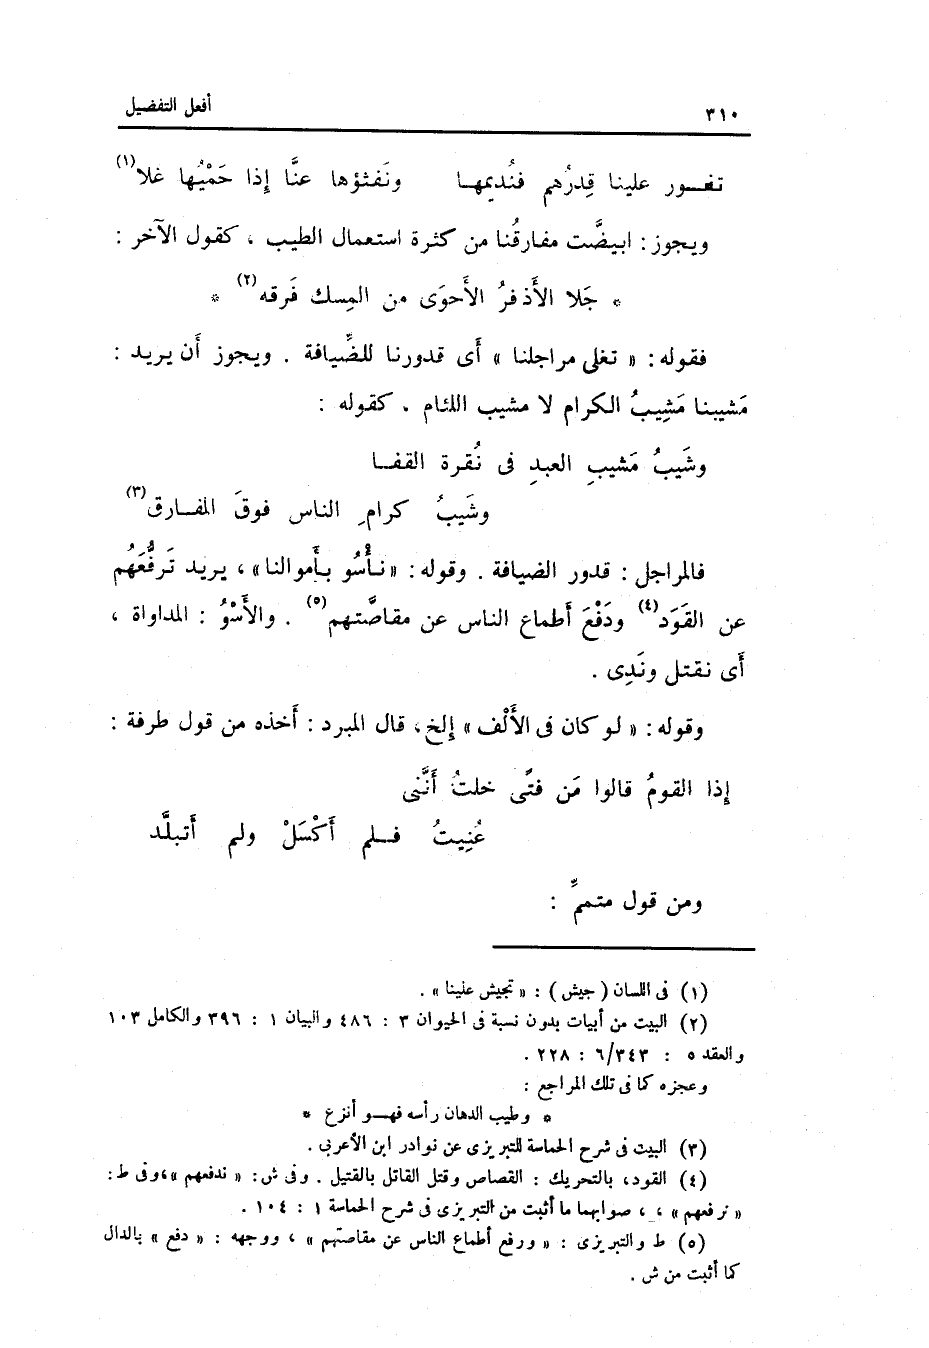 ٣١٠ أفعل التفضيل
تفـــور علينا قِدرُهم فنُديمهـا ونَفثؤها عنَّا إذا حَمْيُها غلا(١)
ويجوز : ابيضَّت مفارقُنا من كثرة استعمال الطيب ، كقول الآخر :
* جَلا الأَذفرُ الأَحوَى من المِسك فَرقه(٢) *
فقوله : « تغلى مراجلنا » أَى قدورنا للضِّيافة . ويجوز أَن يريد :
مَشيبنا مَشِيبُ الكرام لا مشيب اللئام . كقوله :
وشَيبُ مَشيبِ العبدِ فى نُقرة القفـا
وشَيبُ كرامِ الناس فوقَ المفـارق(٣)
فالمراجل : قدور الضيافة . وقوله : «نأْسُو بأَموالنا» ، يريد تَرفُّعَهُم
عن القَوَد(٤) ودَفْعَ أَطماع الناس عن مقاصَّتهم(٥) . والأَسْوُ : المداواة ،
أَى نقتل ونَدِى .
وقوله : « لو كان فى الأَلْف » إلخ ، قال المبرد : أَخذه من قول طرفة :
إذا القومُ قالوا مَن فتًى خلتُ أَنَّنى
عُنِيتُ فـلم أَكْسَلْ ولم أَتبلَّد
ومن قول متممٍّ :
(١) فى اللسان ( جيش ) : « تجيش علينا » .
(٢) البيت من أبيات بدون نسبة فى الحيوان ٣ : ٤٨٦ والبيان ١ : ٣٩٦ والكامل ١٠٣
والعقد ٥ : ٣٤٣/ ٦ : ٢٢٨ .
وعجزه كما فى تلك المراجع :
* وطيب الدهان رأسه فهـو أنزع *
(٣) البيت فى شرح الحماسة للتبريزى عن نوادر ابن الأعربى .
(٤) القود ، بالتحريك : القصاص وقتل القاتل بالقتيل . وفى ش : « ندفعهم » ، وفى ط :
« نرفعهم » ، ، صوابهما ما أثبت من التبريزى فى شرح الحماسة ١ : ١٠٤ .
(٥) ط والتبريزى : « ورفع أطماع الناس عن مقاصتهم » ، ووجهه : « دفع » بالدال
كما أثبت من ش .